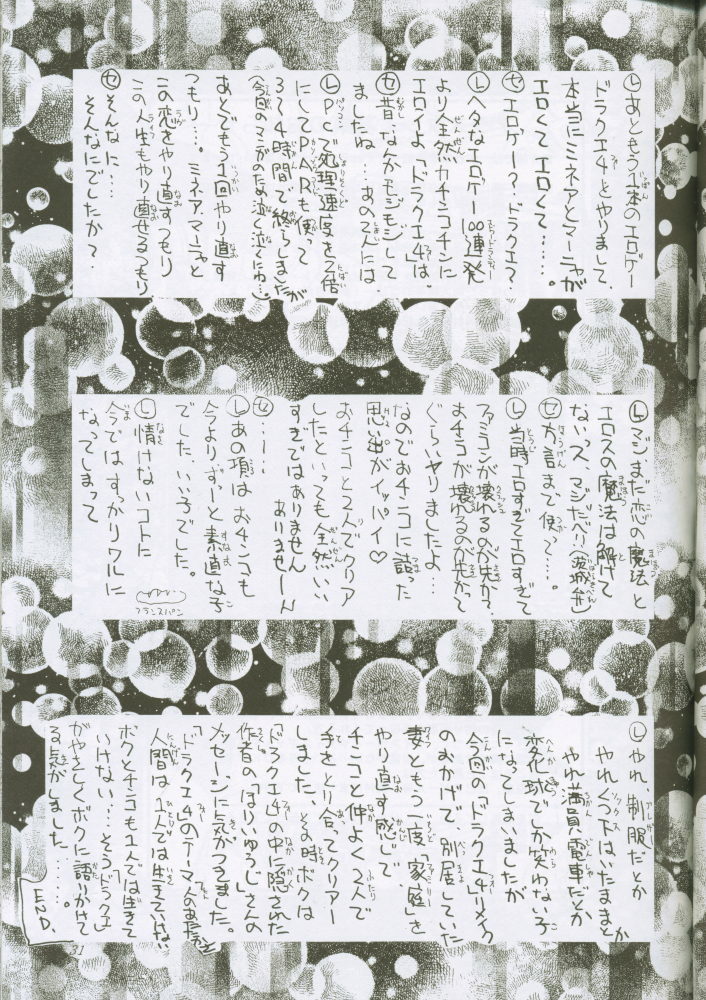 Ⓛあともう1本のエロゲー
ドラクエ4とやりまして、
本当にミネアとマーニャが
エロくてエロくて……。
Ⓗエロゲー？ドラクエ？
Ⓛヘタなエロゲー100連発
より全然カチンコチンに
エロイよ「ドラクエ4」は。
Ⓗ昔、なんかモジモジして
ましたね…あの2人には。
ⓁPCで処理速度を2倍
にしてPARも使って
3〜4時間で終らしましたが
(今回のマンガの中では泣く泣くにゅ…)
あとでもう1回やり直す
つもり…。ミネア、マーニャと
この恋をやり直すつもり
この人生もやり直せるつもり
Ⓗそんなに…
そんなにでしたか？
Ⓛマジまだ恋の魔法と
エロスの魔法は解けて
ないっス、マジだべり(茨城弁)
Ⓗ方言まで使って…。
Ⓛ当時エロすぎてエロすぎて
ファミコンが壊れるのが先か？
おチンコが壊れるのが先かって
ぐらいヤりましたよ…
なのでおチンコに詰った
思い出がイッパイ♡
おチンコと2人でクリア
したといっても全然いい
すぎではありません
ありませーん
Ⓗ……
Ⓛあの頃はおチンコも
今よりずーと素直な子
でした、いい子でした。
Ⓛ情けないコトに
今ではすっかりワルに
なってしまって
フランスパン
Ⓛやれ、制服だとか
やれくつ下はいたままとか
やれ満員電車だとか
変化球でしか笑わない子
になってしまいましたが
今回の「ドラクエ4」リメイク
のおかげで、別居していた
妻ともう一度「家庭」を
やり直す感じで、
チンコと仲よく2人で
手をとり合ってクリアー
しました、その時ボクは
「ドラクエ4」の中に隠された
作者の「ほりいゆうじ」さんの
メッセージに気がつきました。
「ドラクエ4」のテーマ「人のあたたか
人間は1人では生きていけない
ボクとチンコも1人では生きて
いけない…そうドラクエ4
がやさしくボクに語りかけて
る気がしました……。
END.
31